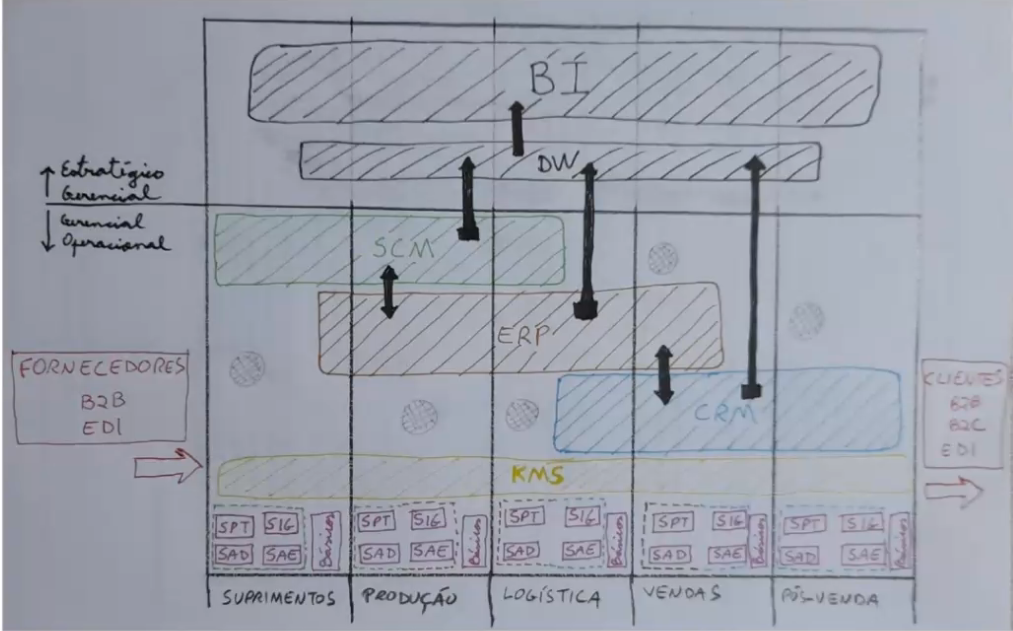 BI
DW
↑ Estratégico
Gerencial
↓ Gerencial
Operacional
SCM
ERP
CRM
KMS
FORNECEDORES
B2B
EDI
CLIENTES
B2B
B2C
EDI
SPT SIG
SAD SAE
Básicos
SPT SIG
SAD SAE
Básicos
SPT SIG
SAD SAE
Básicos
SPT SIG
SAD SAE
Básicos
SPT SIG
SAD SAE
Básicos
SUPRIMENTOS
PRODUÇÃO
LOGÍSTICA
VENDAS
PÓS-VENDA